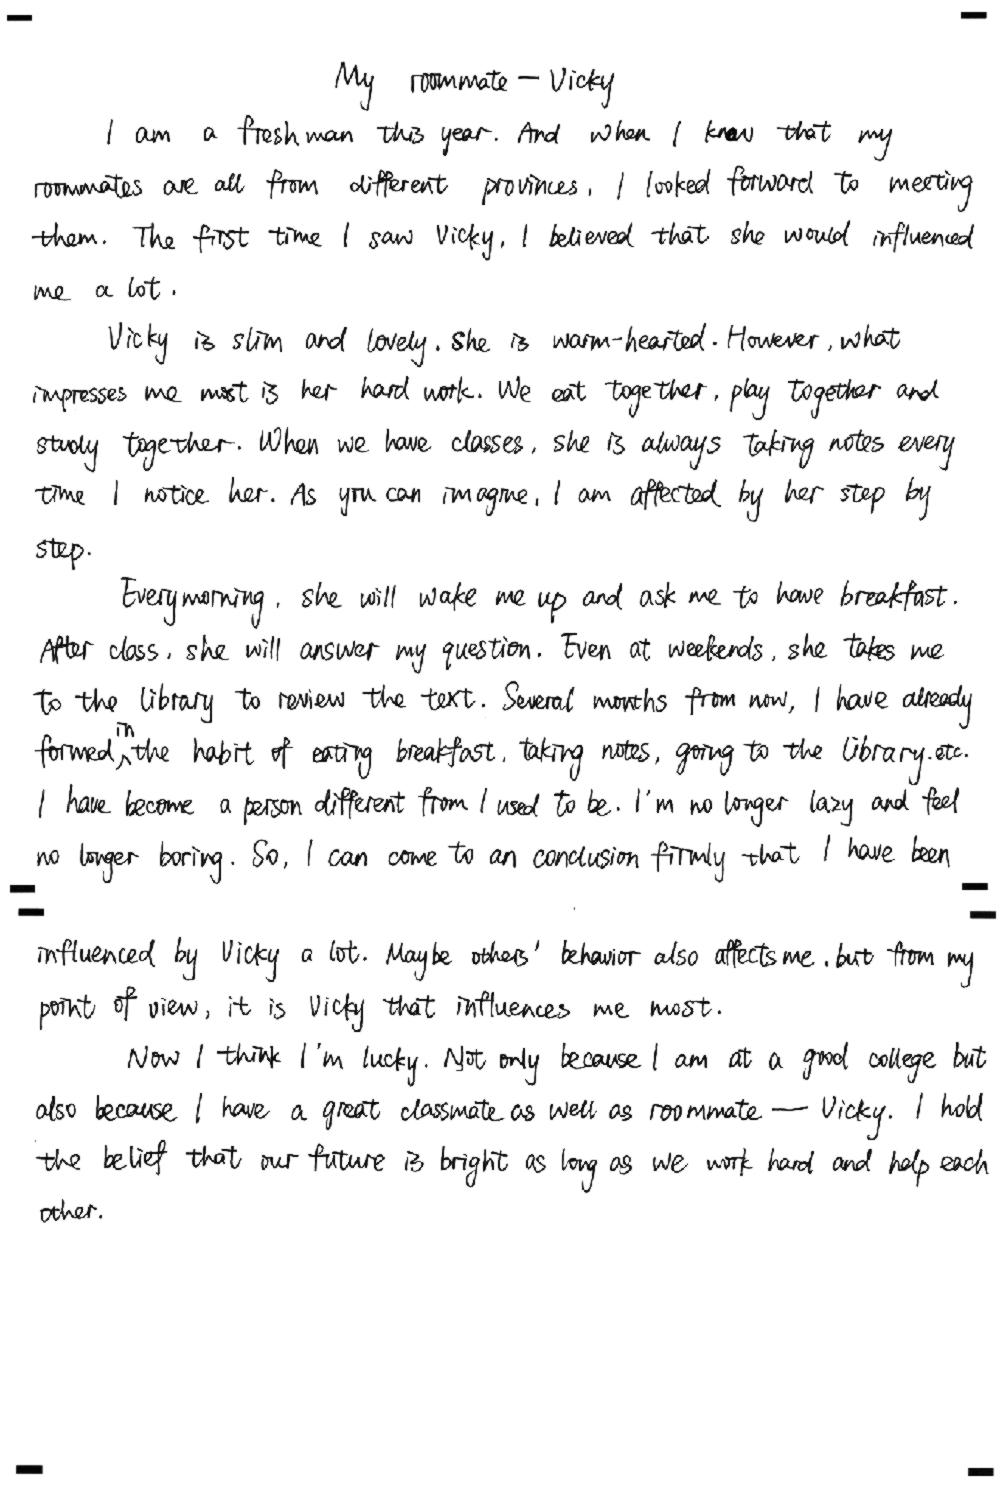 My roommate — Vicky
I am a freshman this year. And when I know that my
roommates are all from different provinces, I looked forward to meeting
them. The first time I saw Vicky, I believed that she would influenced
me a lot.
Vicky is slim and lovely. She is warm-hearted. However, what
impresses me most is her hard work. We eat together, play together and
study together. When we have classes, she is always taking notes every
time I notice her. As you can imagine, I am affected by her step by
step.
Every morning, she will wake me up and ask me to have breakfast.
After class, she will answer my question. Even at weekends, she takes me
to the library to review the text. Several months from now, I have already
formed in the habit of eating breakfast, taking notes, going to the library.etc.
I have become a person different from I used to be. I'm no longer lazy and feel
no longer boring. So, I can come to an conclusion firmly that I have been
influenced by Vicky a lot. Maybe others' behavior also affects me, but from my
point of view, it is Vicky that influences me most.
Now I think I'm lucky. Not only because I am at a good college but
also because I have a great classmate as well as roommate — Vicky. I hold
the belief that our future is bright as long as we work hard and help each
other.